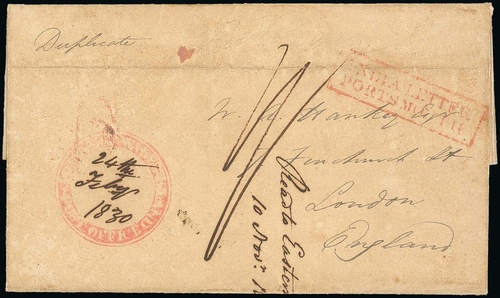 Duplicate
INDIA LETTER
PORTSMOUTH
W. A. Hankey Esqr
7 Fenchurch St
London
England
24th
Feby
1830
10 Novr.